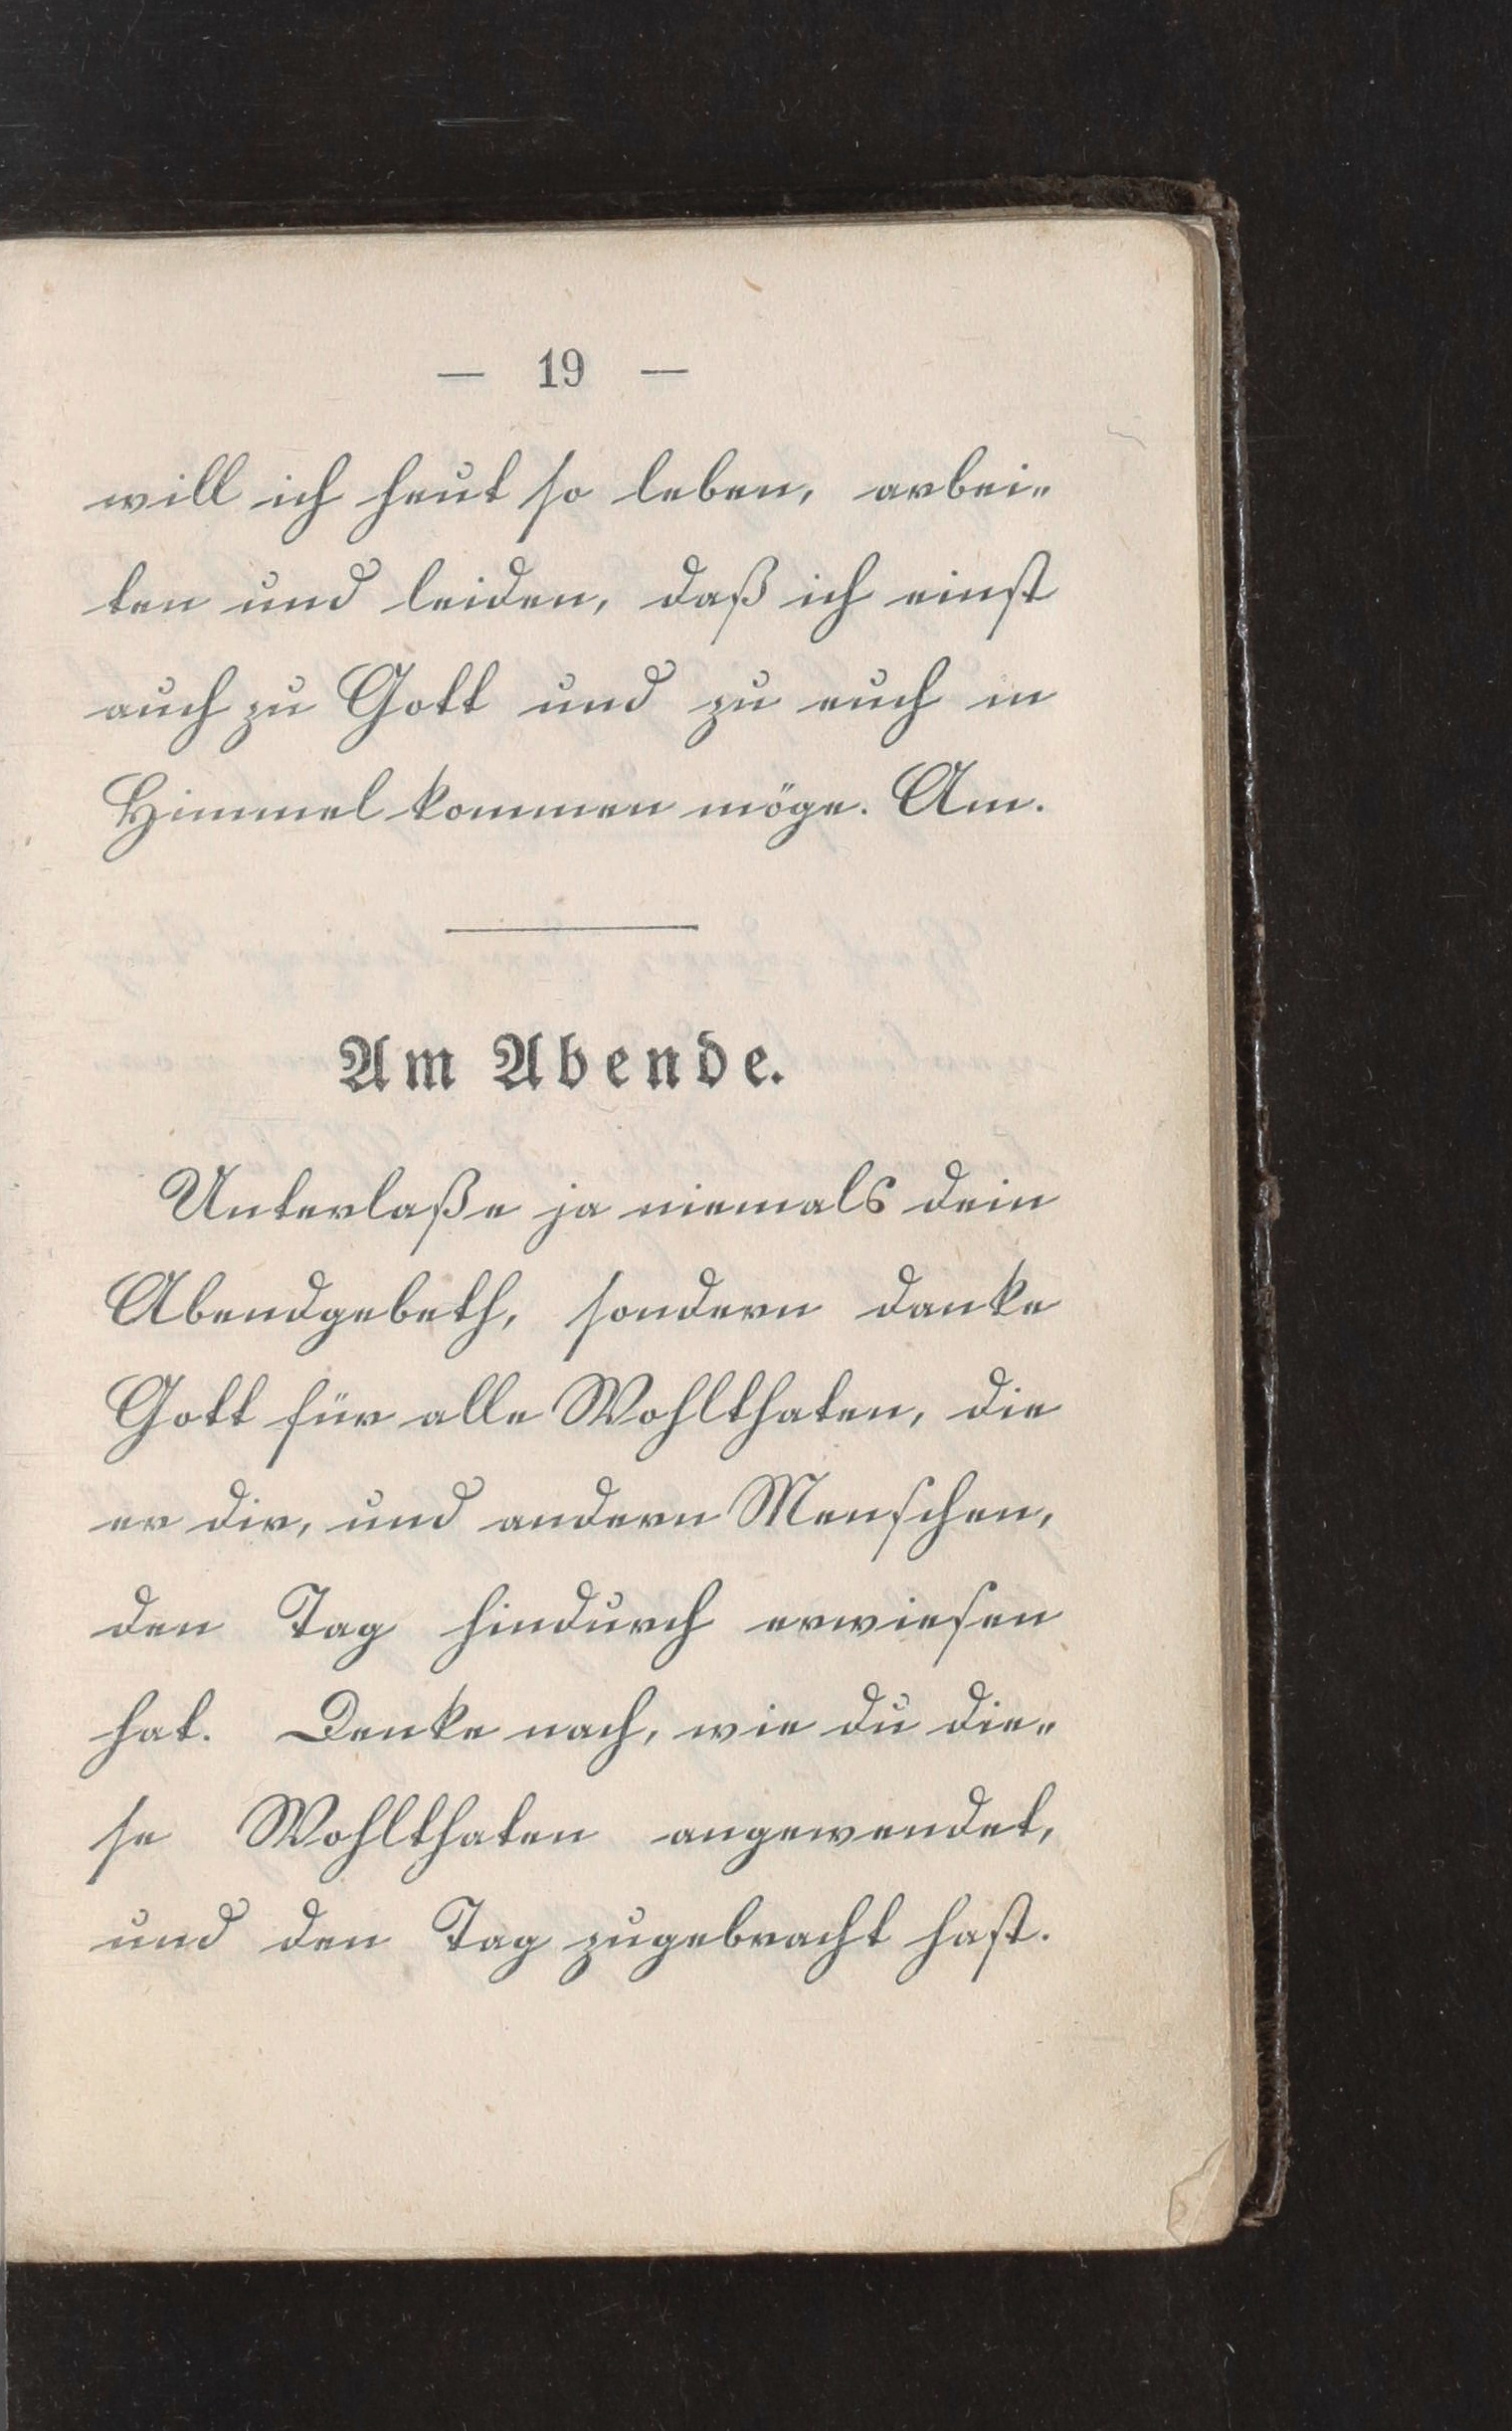 — 19 —
will ich heut so leben, arbei-
ten und leiden, daß ich einst
auch zu Gott und zu euch in
Himmel kommen möge. Am.
Am Abende.
Unterlaße ja niemals dein
Abendgebeth, sondern danke
Gott für alle Wohlthaten, die
er dir, und andern Menschen,
den Tag hindurch erwiesen
hat. Denke nach, wie du die-
se Wohlthaten angewendet,
und den Tag zugebracht hast.